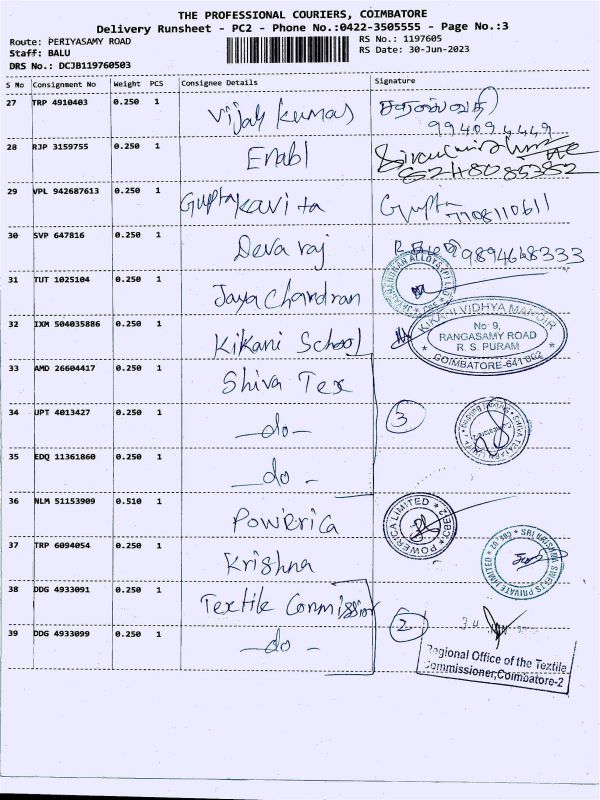 THE PROFESSIONAL COURIERS, COIMBATORE
Delivery Runsheet - PC2 - Phone No.:0422-3505555 - Page No.:3
Route: PERIYASAMY ROAD
RS No.: 1197605
Staff: BALU
RS Date: 30-Jun-2023
DRS No.: DCJB119760503
S No Consignment No Weight PCS Consignee Details Signature
27 TRP 4910403 0.250 1 Vijay Kumar சரஸ்வதி
994094449
28 RJP 3159755 0.250 1 Enabl
6248085382
29 VPL 942687613 0.250 1 Gupta Kavita Gupta 7708110611
30 SVP 647816 0.250 1 Devaraj 9894648333
31 TUT 1025104 0.250 1 Jaya Chandran
32 IXM 504035886 0.250 1 Kikani School
KIKANI VIDHYA MANDIR
No 9,
RANGASAMY ROAD
R. S. PURAM
COIMBATORE-641 002
33 AMD 26604417 0.250 1 Shiva Tex
34 UPT 4013427 0.250 1 -do- 3
35 EDQ 11361860 0.250 1 -do-
36 NLM 51153909 0.510 1 Powerica
POWERICA LIMITED * CBE-2 *
37 TRP 6094054 0.250 1 Krishna
SRI KRISHNA SWEETS PRIVATE LIMITED
38 DDG 4933091 0.250 1 Textile Commission 2
39 DDG 4933099 0.250 1 -do-
Regional Office of the Textile
Commissioner,Coimbatore-2